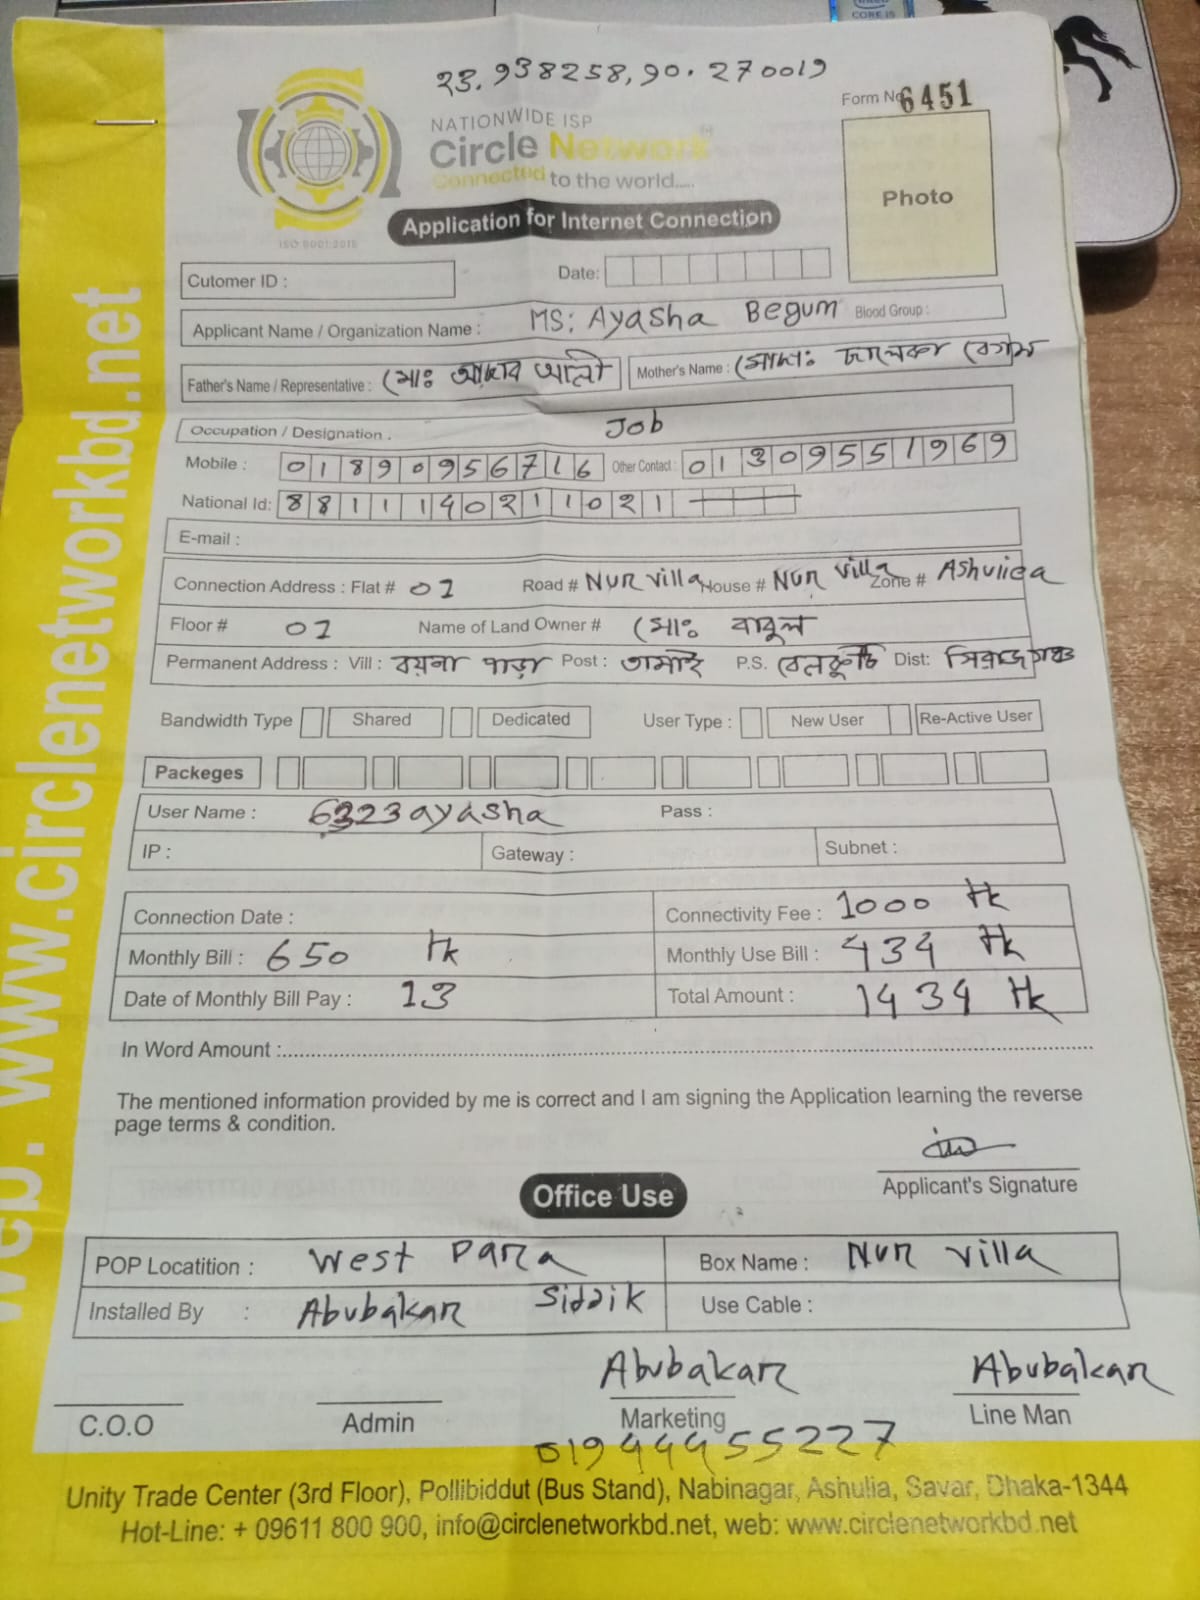 CORE i5
23.938258,90.270019
Form No 6451
NATIONWIDE ISP
Circle Network
Connected to the world.....
ISO 9001:2015
Photo
Application for Internet Connection
Cutomer ID :
Date:
Applicant Name / Organization Name : MS: Ayasha Begum Blood Group :
Father's Name / Representative : মোঃ আলী Mother's Name : মোছাঃ বেগম
Occupation / Designation . Job
Mobile : 01890956716 Other Contact : 01309551969
National Id: 8811140211021
E-mail :
Connection Address : Flat # 01 Road # Nur villa House # Nur villa Zone #
Floor # 01 Name of Land Owner # মোঃ বাবুল
Permanent Address : Vill : বয়না পাড়া Post : তামাই P.S. বেলকুচি Dist: সিরাজগঞ্জ
Bandwidth Type Shared Dedicated User Type : New User Re-Active User
Packeges
User Name : 6323ayasha Pass :
IP : Gateway : Subnet :
Connection Date : Connectivity Fee : 1000 tk
Monthly Bill : 650 tk Monthly Use Bill : 434 tk
Date of Monthly Bill Pay : 13 Total Amount : 1434 tk
In Word Amount :
The mentioned information provided by me is correct and I am signing the Application learning the reverse
page terms & condition.
Applicant's Signature
Office Use
POP Locatition : West Para Box Name : Nur villa
Installed By : Abubakar Siddik Use Cable :
Abubakar Abubakar
C.O.O Admin Marketing Line Man
01944455227
Unity Trade Center (3rd Floor), Pollibiddut (Bus Stand), Nabinagar, Ashulia, Savar, Dhaka-1344
Hot-Line: + 09611 800 900, info@circlenetworkbd.net, web: www.circlenetworkbd.net
web. www.circlenetworkbd.net